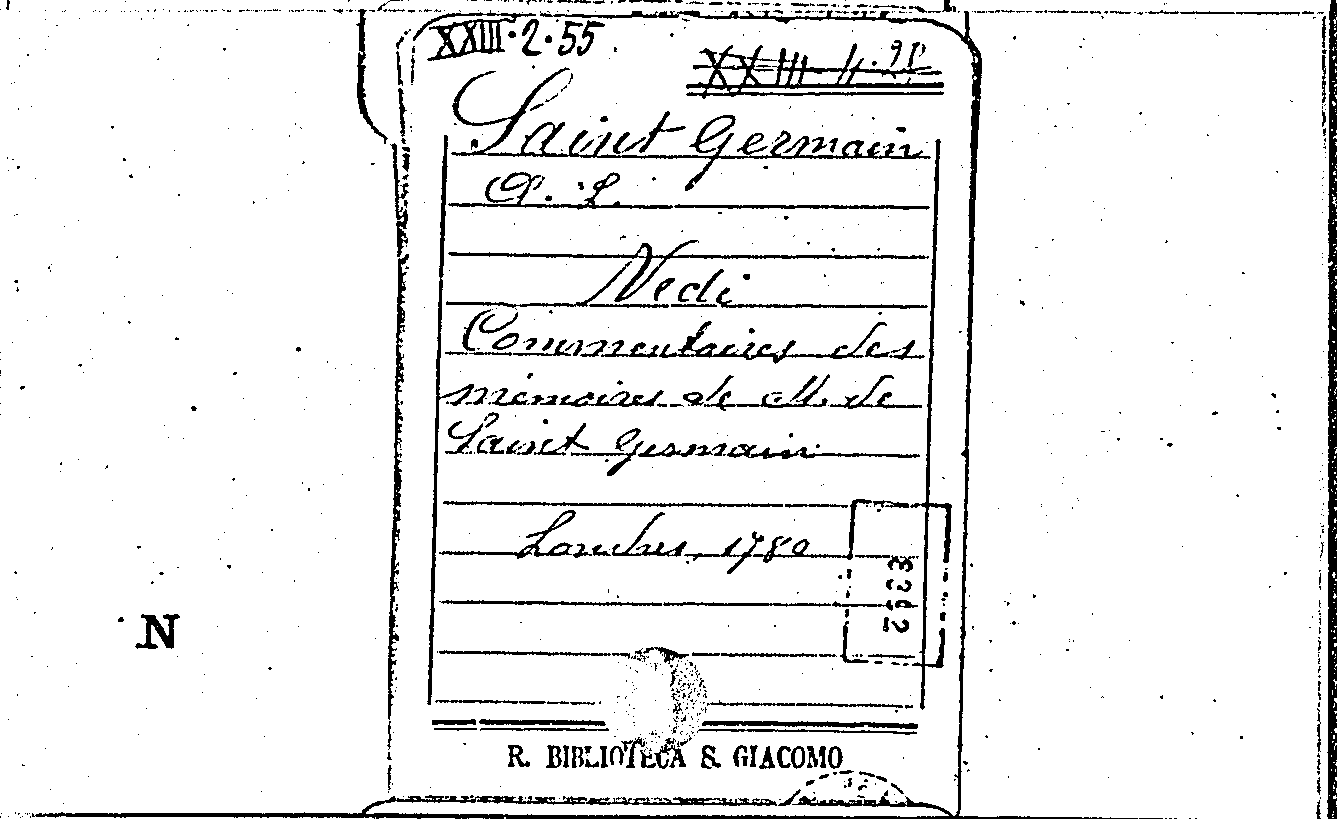 XXIII·2·55
XXIII
Saint Germain
Vedi
Commentaires des
mémoires de M. de
Saint Germain
Londres, 1780
N
R. BIBLIOTECA S. GIACOMO